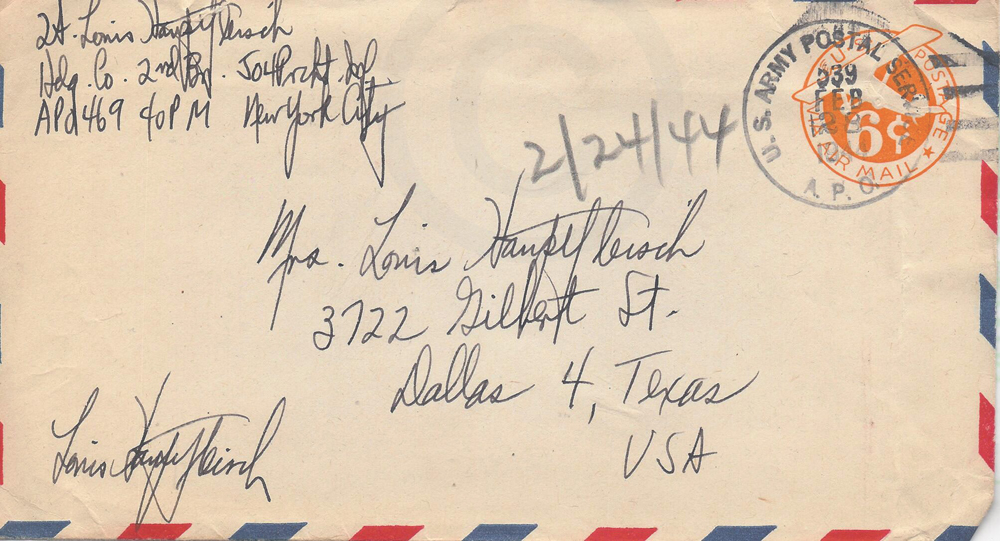 Lt. Louis Hauptfleisch
Hdq. Co. 2nd Bn. 504 Prcht. Inf.
APO 469 c/o P M New York City
U.S. ARMY POSTAL SERVICE
539
FEB
A. P. O.
U.S. POSTAGE
6¢
AIR MAIL
2/24/44
Mrs. Louis Hauptfleisch
3722 Gilbert St.
Dallas 4, Texas
USA
Louis Hauptfleisch